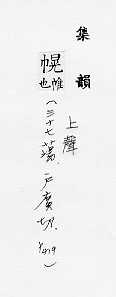 集韻
上聲
幌帷也(三十七蕩.戶廣切.)